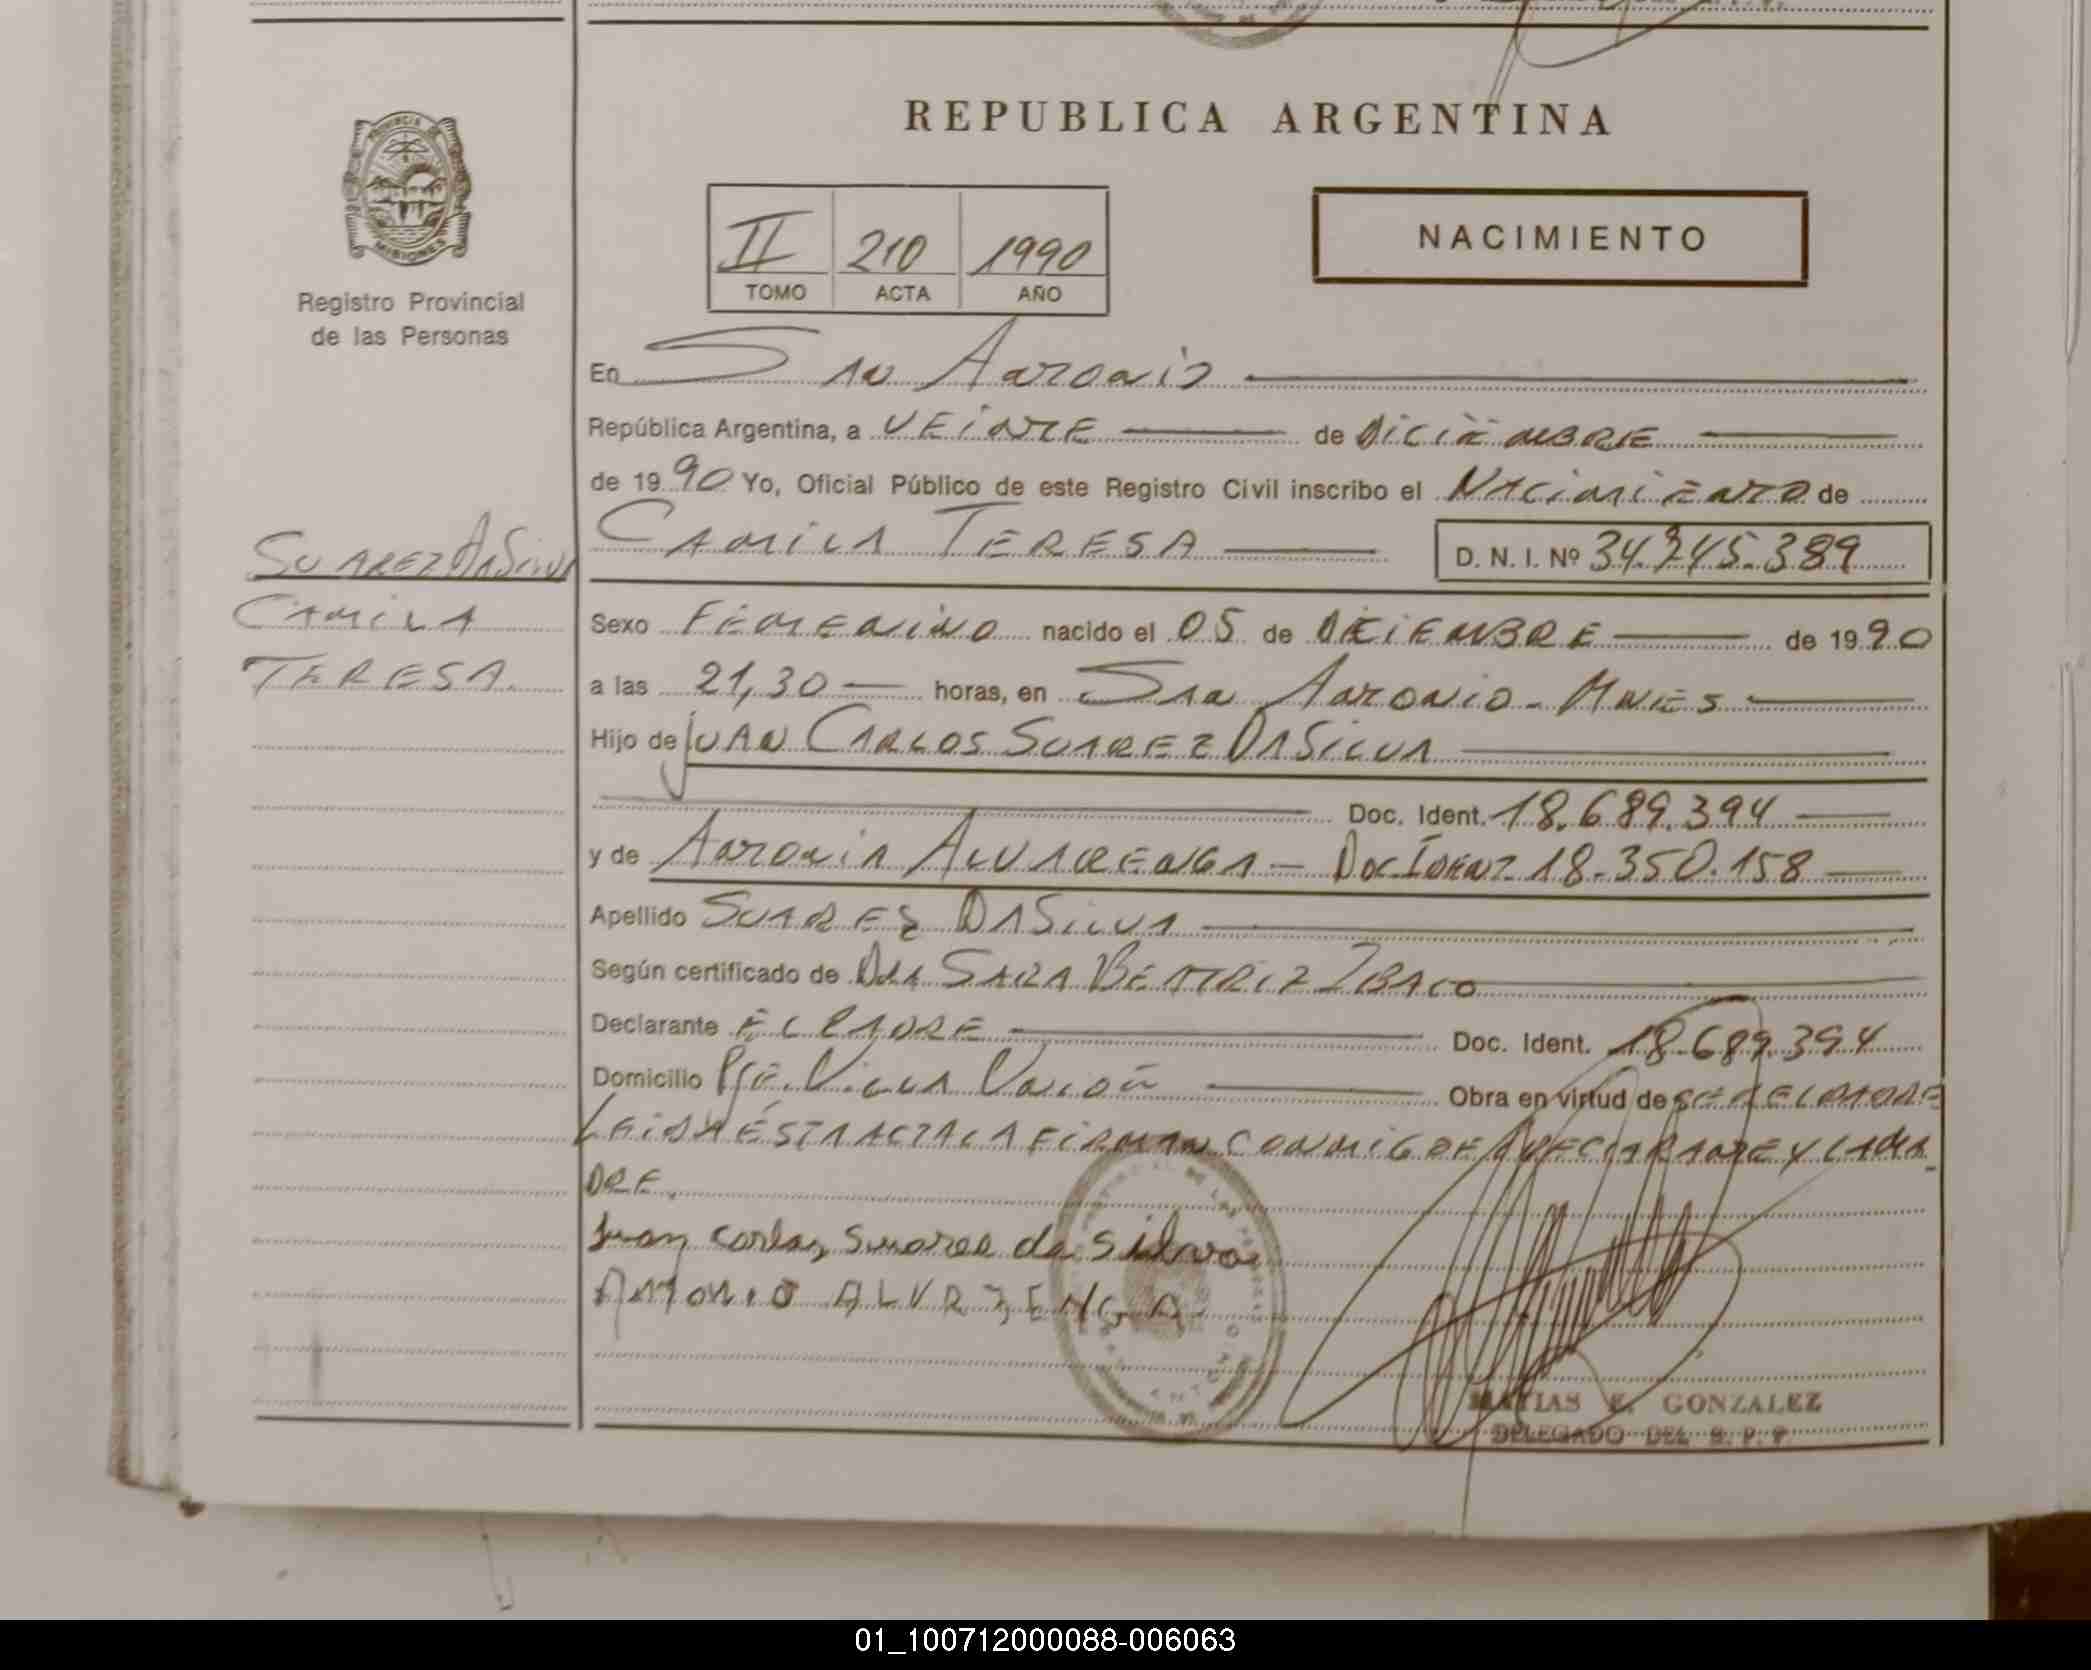 REPUBLICA ARGENTINA
PROVINCIA DE
MISIONES
Registro Provincial
de las Personas
II 210 1990
TOMO ACTA AÑO
NACIMIENTO
En San Antonio
República Argentina, a VEiNTE de DiCiEMBRE
de 1990 Yo, Oficial Público de este Registro Civil inscribo el NACiMiENTO de
CAMiLA TERESA D. N. I. Nº 34.745.389
SUAREZ DASiLVA
CAMiLA
TERESA.
Sexo FEMENiNO nacido el 05 de DiCiEMBRE de 1990
a las 21,30 horas, en San Antonio - MNES
Hijo de JUAN CARLOS SUAREZ DASiLVA
Doc. Ident. 18.689.394
y de ANTONiA ALVARENGA - DOC IDENT 18.350.158
Apellido SUAREZ DASiLVA
Según certificado de DRA SARA BEATRiZ
Declarante EL PADRE Doc. Ident. 18.689.394
Domicilio Pje. ViLLA UNiÓN Obra en virtud de SER EL PADRE
LEiDA ÉSTA ACTA LA FiRMAN CONMiGO EL DECLARANTE Y LA MA
DRE.
Juan Carlos Suarez da Silva
ANTONIO ALVRENGA
MATIAS E. GONZALEZ
DELEGADO DEL R. P. P.
01_100712000088-006063